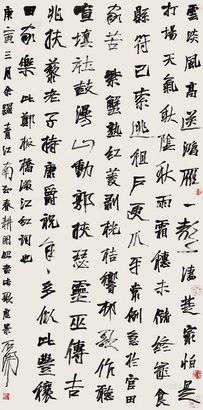 雲淡風高送鴻雁一聲凄楚最怕是
打場天氣秋陰秋雨霜穗未儲終歲食
縣符已索逃租戶更爪牙常例急於官田
家苦紫蟹熟紅菱剥桔響村歌作聽
喧填社鼓漫山動郭挾瑟靈巫傳吉
兆扶藜老子持康爵祝年年多似此豐穰
田家樂此鄭板橋滿江紅詞也
庚寅三月余江南春耕圖